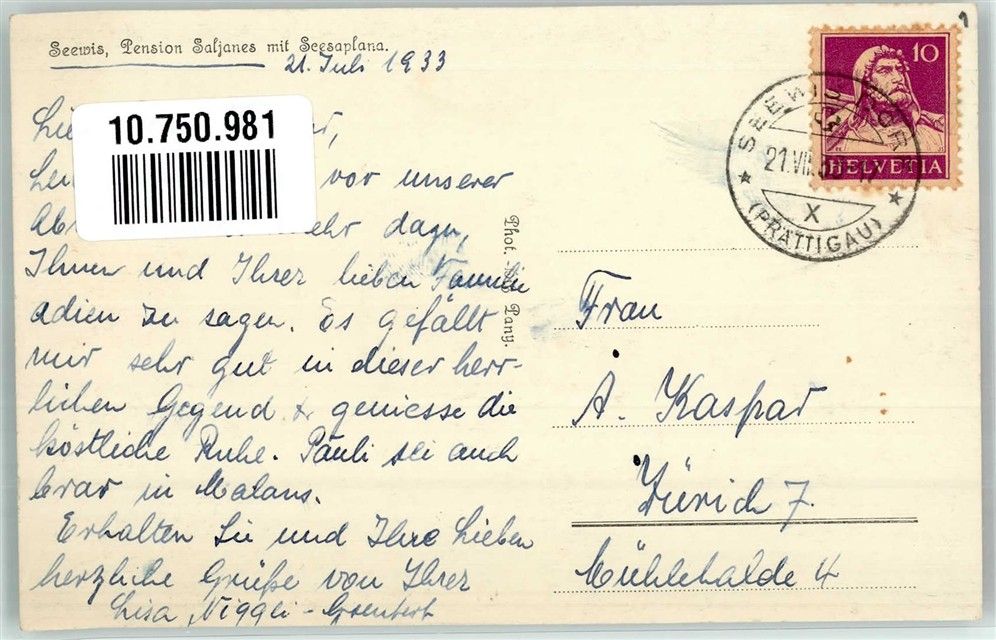 Seewis, Pension Saljanes mit Scesaplana.
21. Juli 1933
10.750.981
vor unserer
mehr dazu,
Ihnen und Ihrer lieben Familie
adieu zu sagen. Es gefällt
mir sehr gut in dieser herr-
lichen Gegend & geniesse die
köstliche Ruhe. Päuli sei auch
brav in Malans.
Erhalten Sie und Ihre Lieben
herzliche Grüße von Ihrer
Lisa Niggli-
Phot. Pany.
10
HELVETIA
SEEWIS
21.VII.
X
(PRÄTTIGAU)
Frau
A. Kaspar
Zürich 7.
Mühlehalde 4